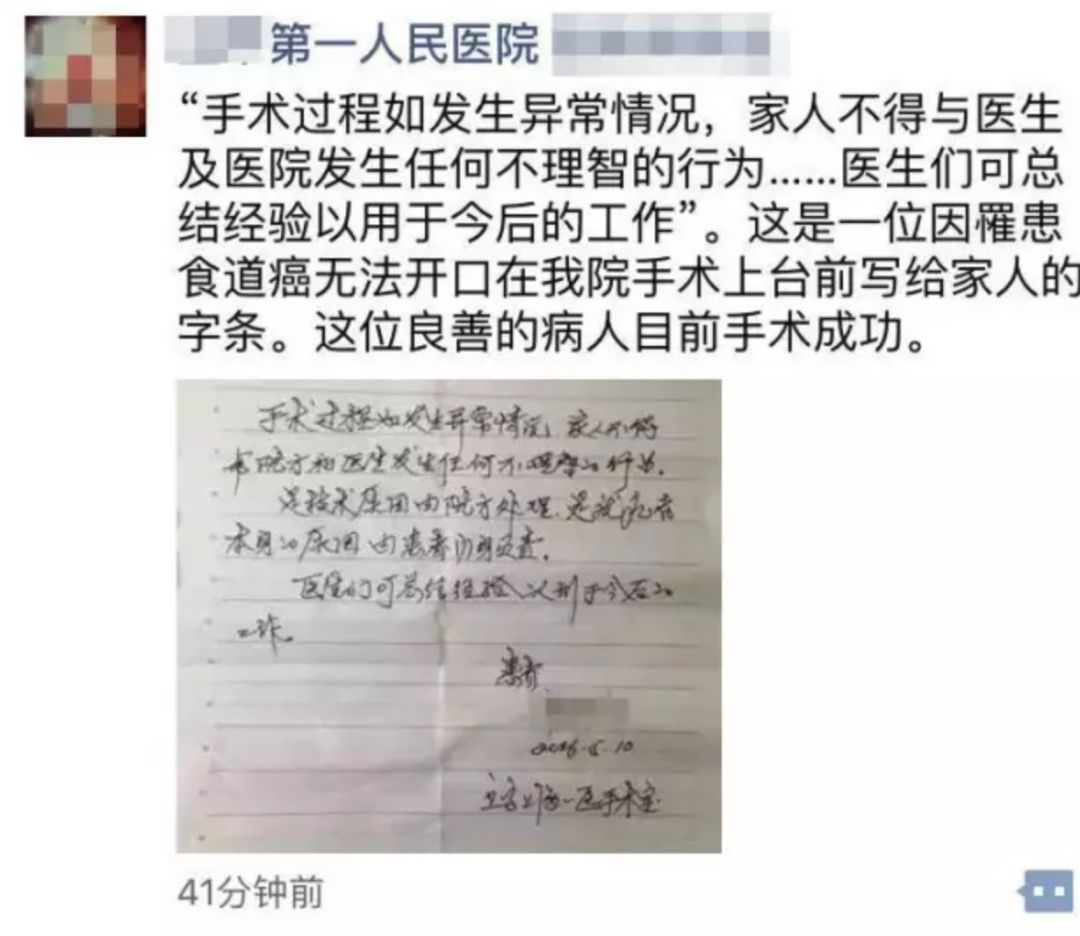 第一人民医院
“手术过程如发生异常情况，家人不得与医生
及医院发生任何不理智的行为……医生们可总
结经验以用于今后的工作”。这是一位因罹患
食道癌无法开口在我院手术上台前写给家人的
字条。这位良善的病人目前手术成功。
手术过程如发生异常情况，家人不得
与院方和医生发生任何不理智的行为。
是技术原因由院方处理，是
本身的原因由患者自负责。
医生们可总结经验以利于今后的
工作。
患者
2016.5.10
一医手术室
41分钟前